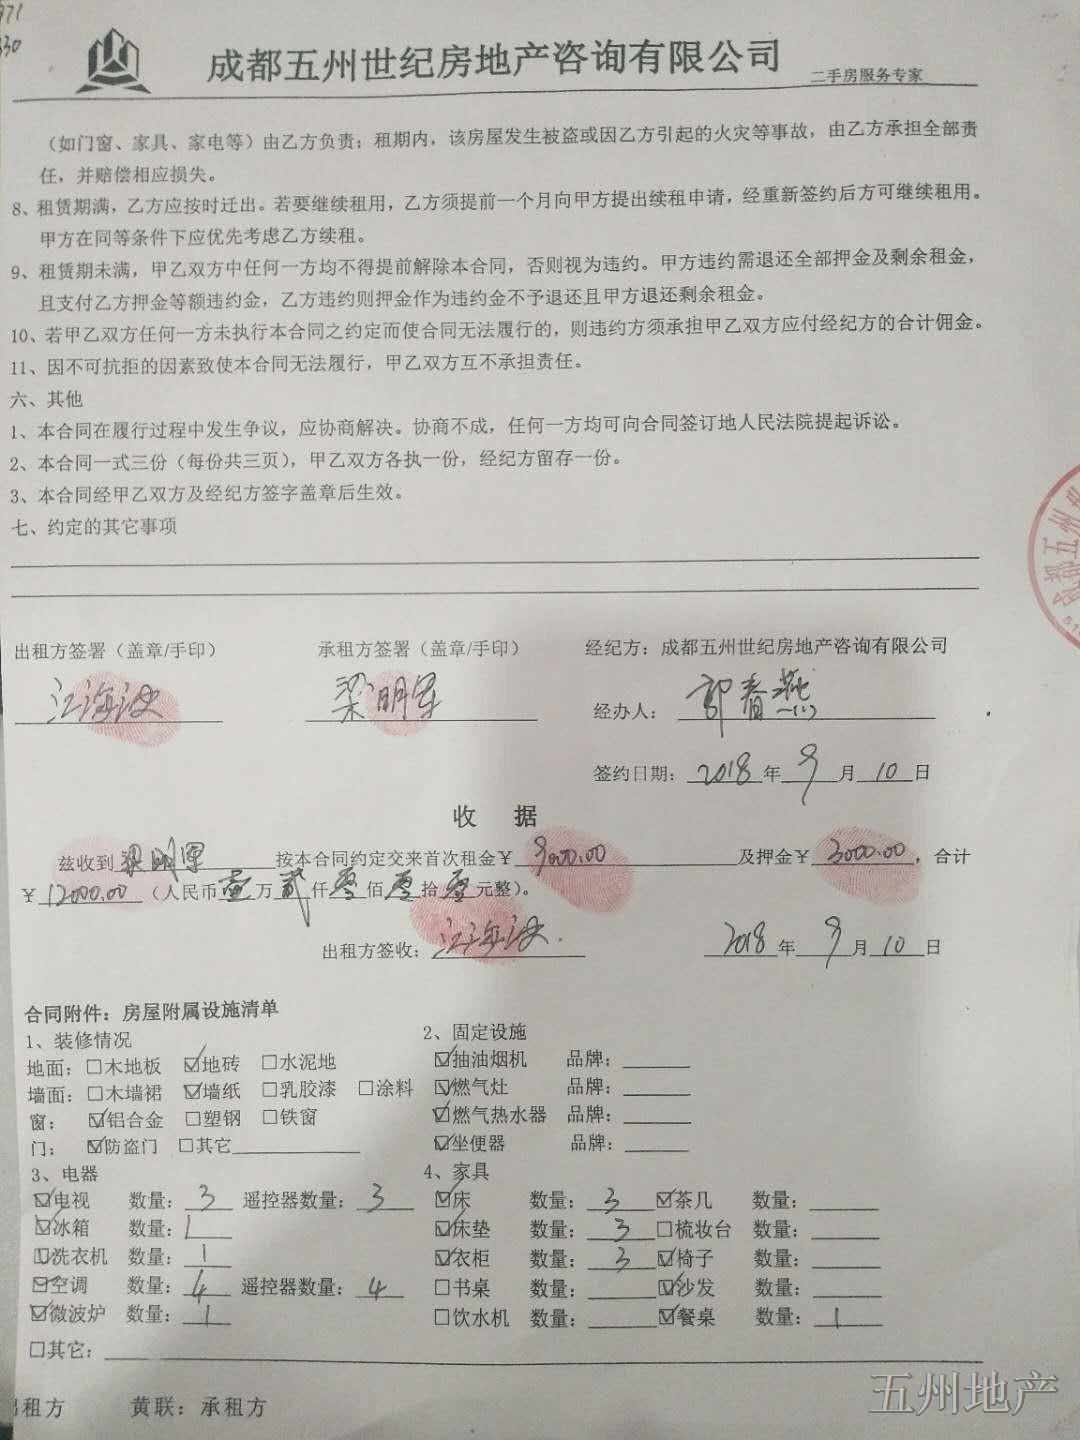 971
330
成都五州世纪房地产咨询有限公司
二手房服务专家
（如门窗、家具、家电等）由乙方负责；租期内，该房屋发生被盗或因乙方引起的火灾等事故，由乙方承担全部责
任，并赔偿相应损失。
8、租赁期满，乙方应按时迁出。若要继续租用，乙方须提前一个月向甲方提出续租申请，经重新签约后方可继续租用。
甲方在同等条件下应优先考虑乙方续租。
9、租赁期未满，甲乙双方中任何一方均不得提前解除本合同，否则视为违约。甲方违约需退还全部押金及剩余租金，
且支付乙方押金等额违约金，乙方违约则押金作为违约金不予退还且甲方退还剩余租金。
10、若甲乙双方任何一方未执行本合同之约定而使合同无法履行的，则违约方须承担甲乙双方应付经纪方的合计佣金。
11、因不可抗拒的因素致使本合同无法履行，甲乙双方互不承担责任。
六、其他
1、本合同在履行过程中发生争议，应协商解决。协商不成，任何一方均可向合同签订地人民法院提起诉讼。
2、本合同一式三份（每份共三页），甲乙双方各执一份，经纪方留存一份。
3、本合同经甲乙双方及经纪方签字盖章后生效。
七、约定的其它事项
成都五州世
出租方签署（盖章/手印） 承租方签署（盖章/手印） 经纪方：成都五州世纪房地产咨询有限公司
江海波 梁明军 经办人：郭春燕
签约日期：2018年9月10日
收 据
兹收到梁明军按本合同约定交来首次租金￥9000.00及押金￥3000.00，合计
￥12000.00（人民币壹万贰仟零佰零拾零元整）。
出租方签收：江海波. 2018年9月10日
合同附件：房屋附属设施清单
1、装修情况 2、固定设施
地面：□木地板 ☑地砖 □水泥地 ☑抽油烟机 品牌：
墙面：□木墙裙 ☑墙纸 □乳胶漆 □涂料 ☑燃气灶 品牌：
窗： ☑铝合金 □塑钢 □铁窗 ☑燃气热水器 品牌：
门： ☑防盗门 □其它 ☑坐便器 品牌：
3、电器 4、家具
☑电视 数量：3 遥控器数量：3 ☑床 数量：3 ☑茶几 数量：
☑冰箱 数量：1 ☑床垫 数量：3 □梳妆台 数量：
☑洗衣机 数量：1 ☑衣柜 数量：3 ☑椅子 数量：
☑空调 数量：4 遥控器数量：4 □书桌 数量： ☑沙发 数量：
☑微波炉 数量：1 □饮水机 数量： ☑餐桌 数量：1
□其它：
租方 黄联：承租方
五州地产